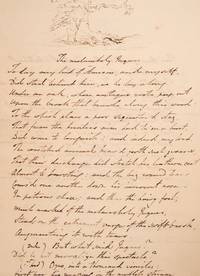 The melancholy Jaques.
To day my lord of Amiens, and myself,
Did steal behind him, as he lay along
Under an oak, whose antique root peeps out
Upon the brook that brawls along this wood
To the which place a poor sequester'd stag
That from the hunters aim had ta'en a hurt
Did come to languish; and indeed, my lord
The wretched animal heav'd forth such groans
That their discharge did stretch his leathern coat
Almost to bursting; and the big round tears
Cours'd one another down his innocent nose
In piteous chase; and thus the hairy fool,
Much marked of the melancholy Jaques,
Stood on the verge of the swift brook
Augmenting it with tears.
(Duke) But what said Jaques?
Did he not moralize this spectacle?
(Lord) O yes, into a thousand similes,